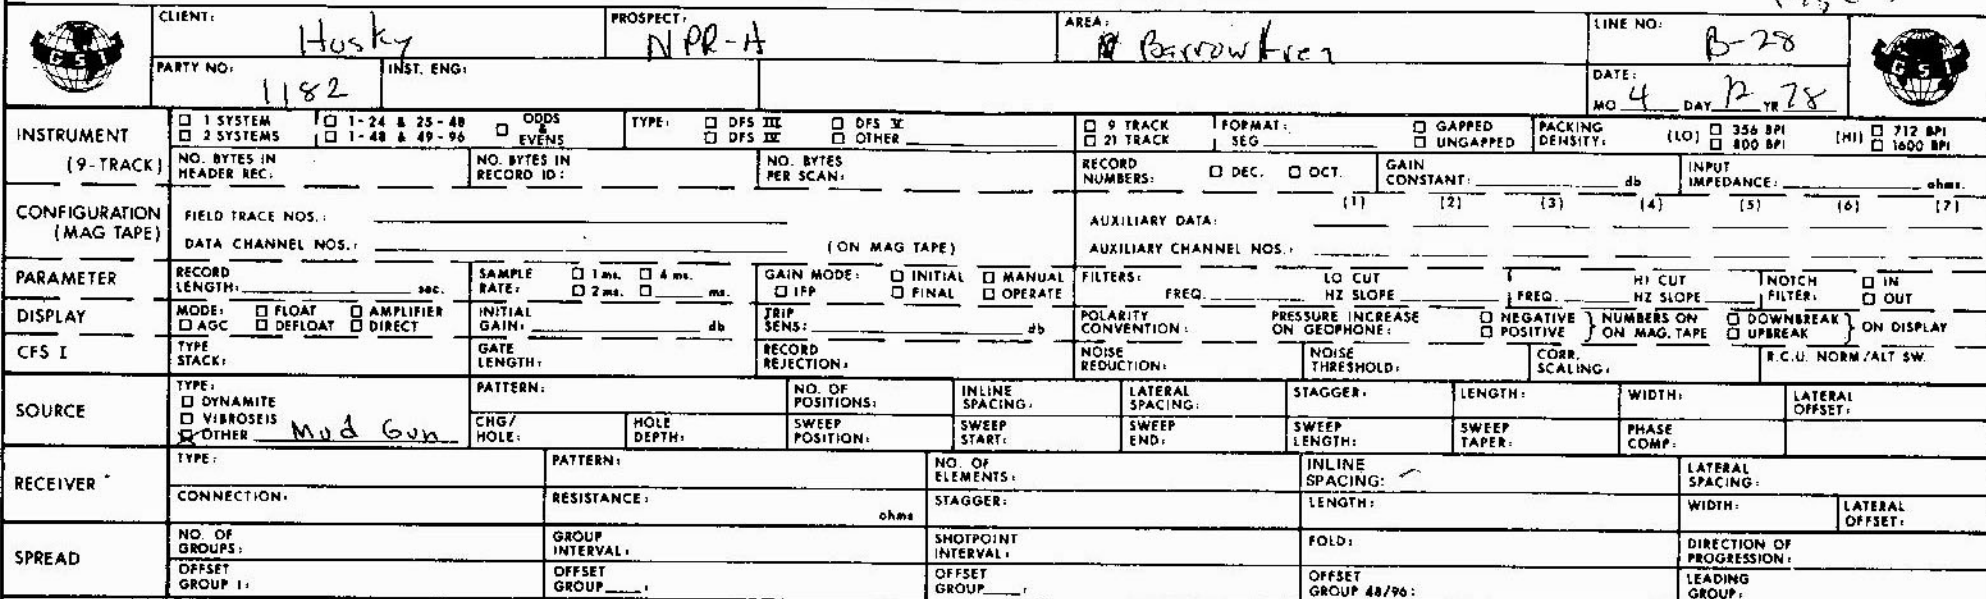 CLIENT: Husky PROSPECT: NPR-A AREA: Barrow Area LINE NO: B-28
GSI GSI
PARTY NO: 1182 INST. ENG: DATE: MO 4 DAY 12 YR 78
INSTRUMENT (9-TRACK) □ 1 SYSTEM □ 1-24 & 25-48 □ ODDS & EVENS TYPE: □ DFS III □ DFS V □ 9 TRACK FORMAT: □ GAPPED PACKING DENSITY: (LO) □ 356 BPI (HI) □ 712 BPI
□ 2 SYSTEMS □ 1-48 & 49-96 □ DFS IV □ OTHER □ 21 TRACK SEG □ UNGAPPED □ 800 BPI □ 1600 BPI
NO. BYTES IN HEADER REC: NO. BYTES IN RECORD ID: NO. BYTES PER SCAN: RECORD NUMBERS: □ DEC. □ OCT. GAIN CONSTANT: db INPUT IMPEDANCE: ohms.
CONFIGURATION (MAG TAPE) (1) (2) (3) (4) (5) (6) (7)
FIELD TRACE NOS.: AUXILIARY DATA:
DATA CHANNEL NOS.: (ON MAG TAPE) AUXILIARY CHANNEL NOS.:
PARAMETER RECORD LENGTH: sec. SAMPLE RATE: □ 1 ms. □ 4 ms. □ 2 ms. □ ms. GAIN MODE: □ INITIAL □ MANUAL □ IFP □ FINAL □ OPERATE FILTERS: LO CUT FREQ. HZ SLOPE HI CUT FREQ. HZ SLOPE NOTCH FILTER: □ IN □ OUT
DISPLAY MODE: □ FLOAT □ AMPLIFIER □ AGC □ DEFLOAT □ DIRECT INITIAL GAIN: db TRIP SENS: db POLARITY CONVENTION: PRESSURE INCREASE ON GEOPHONE: □ NEGATIVE □ POSITIVE } NUMBERS ON ON MAG. TAPE □ DOWNBREAK □ UPBREAK } ON DISPLAY
CFS I TYPE STACK: GATE LENGTH: RECORD REJECTION: NOISE REDUCTION: NOISE THRESHOLD: CORR. SCALING: R.C.U. NORM/ALT SW.
SOURCE TYPE: □ DYNAMITE □ VIBROSEIS ☒ OTHER Mud Gun PATTERN: NO. OF POSITIONS: INLINE SPACING: LATERAL SPACING: STAGGER: LENGTH: WIDTH: LATERAL OFFSET:
CHG/HOLE: HOLE DEPTH: SWEEP POSITION: SWEEP START: SWEEP END: SWEEP LENGTH: SWEEP TAPER: PHASE COMP:
RECEIVER TYPE: PATTERN: NO. OF ELEMENTS: INLINE SPACING: LATERAL SPACING:
CONNECTION: RESISTANCE: ohms STAGGER: LENGTH: WIDTH: LATERAL OFFSET:
SPREAD NO. OF GROUPS: GROUP INTERVAL: SHOTPOINT INTERVAL: FOLD: DIRECTION OF PROGRESSION:
OFFSET GROUP 1: OFFSET GROUP : OFFSET GROUP : OFFSET GROUP 48/96: LEADING GROUP: